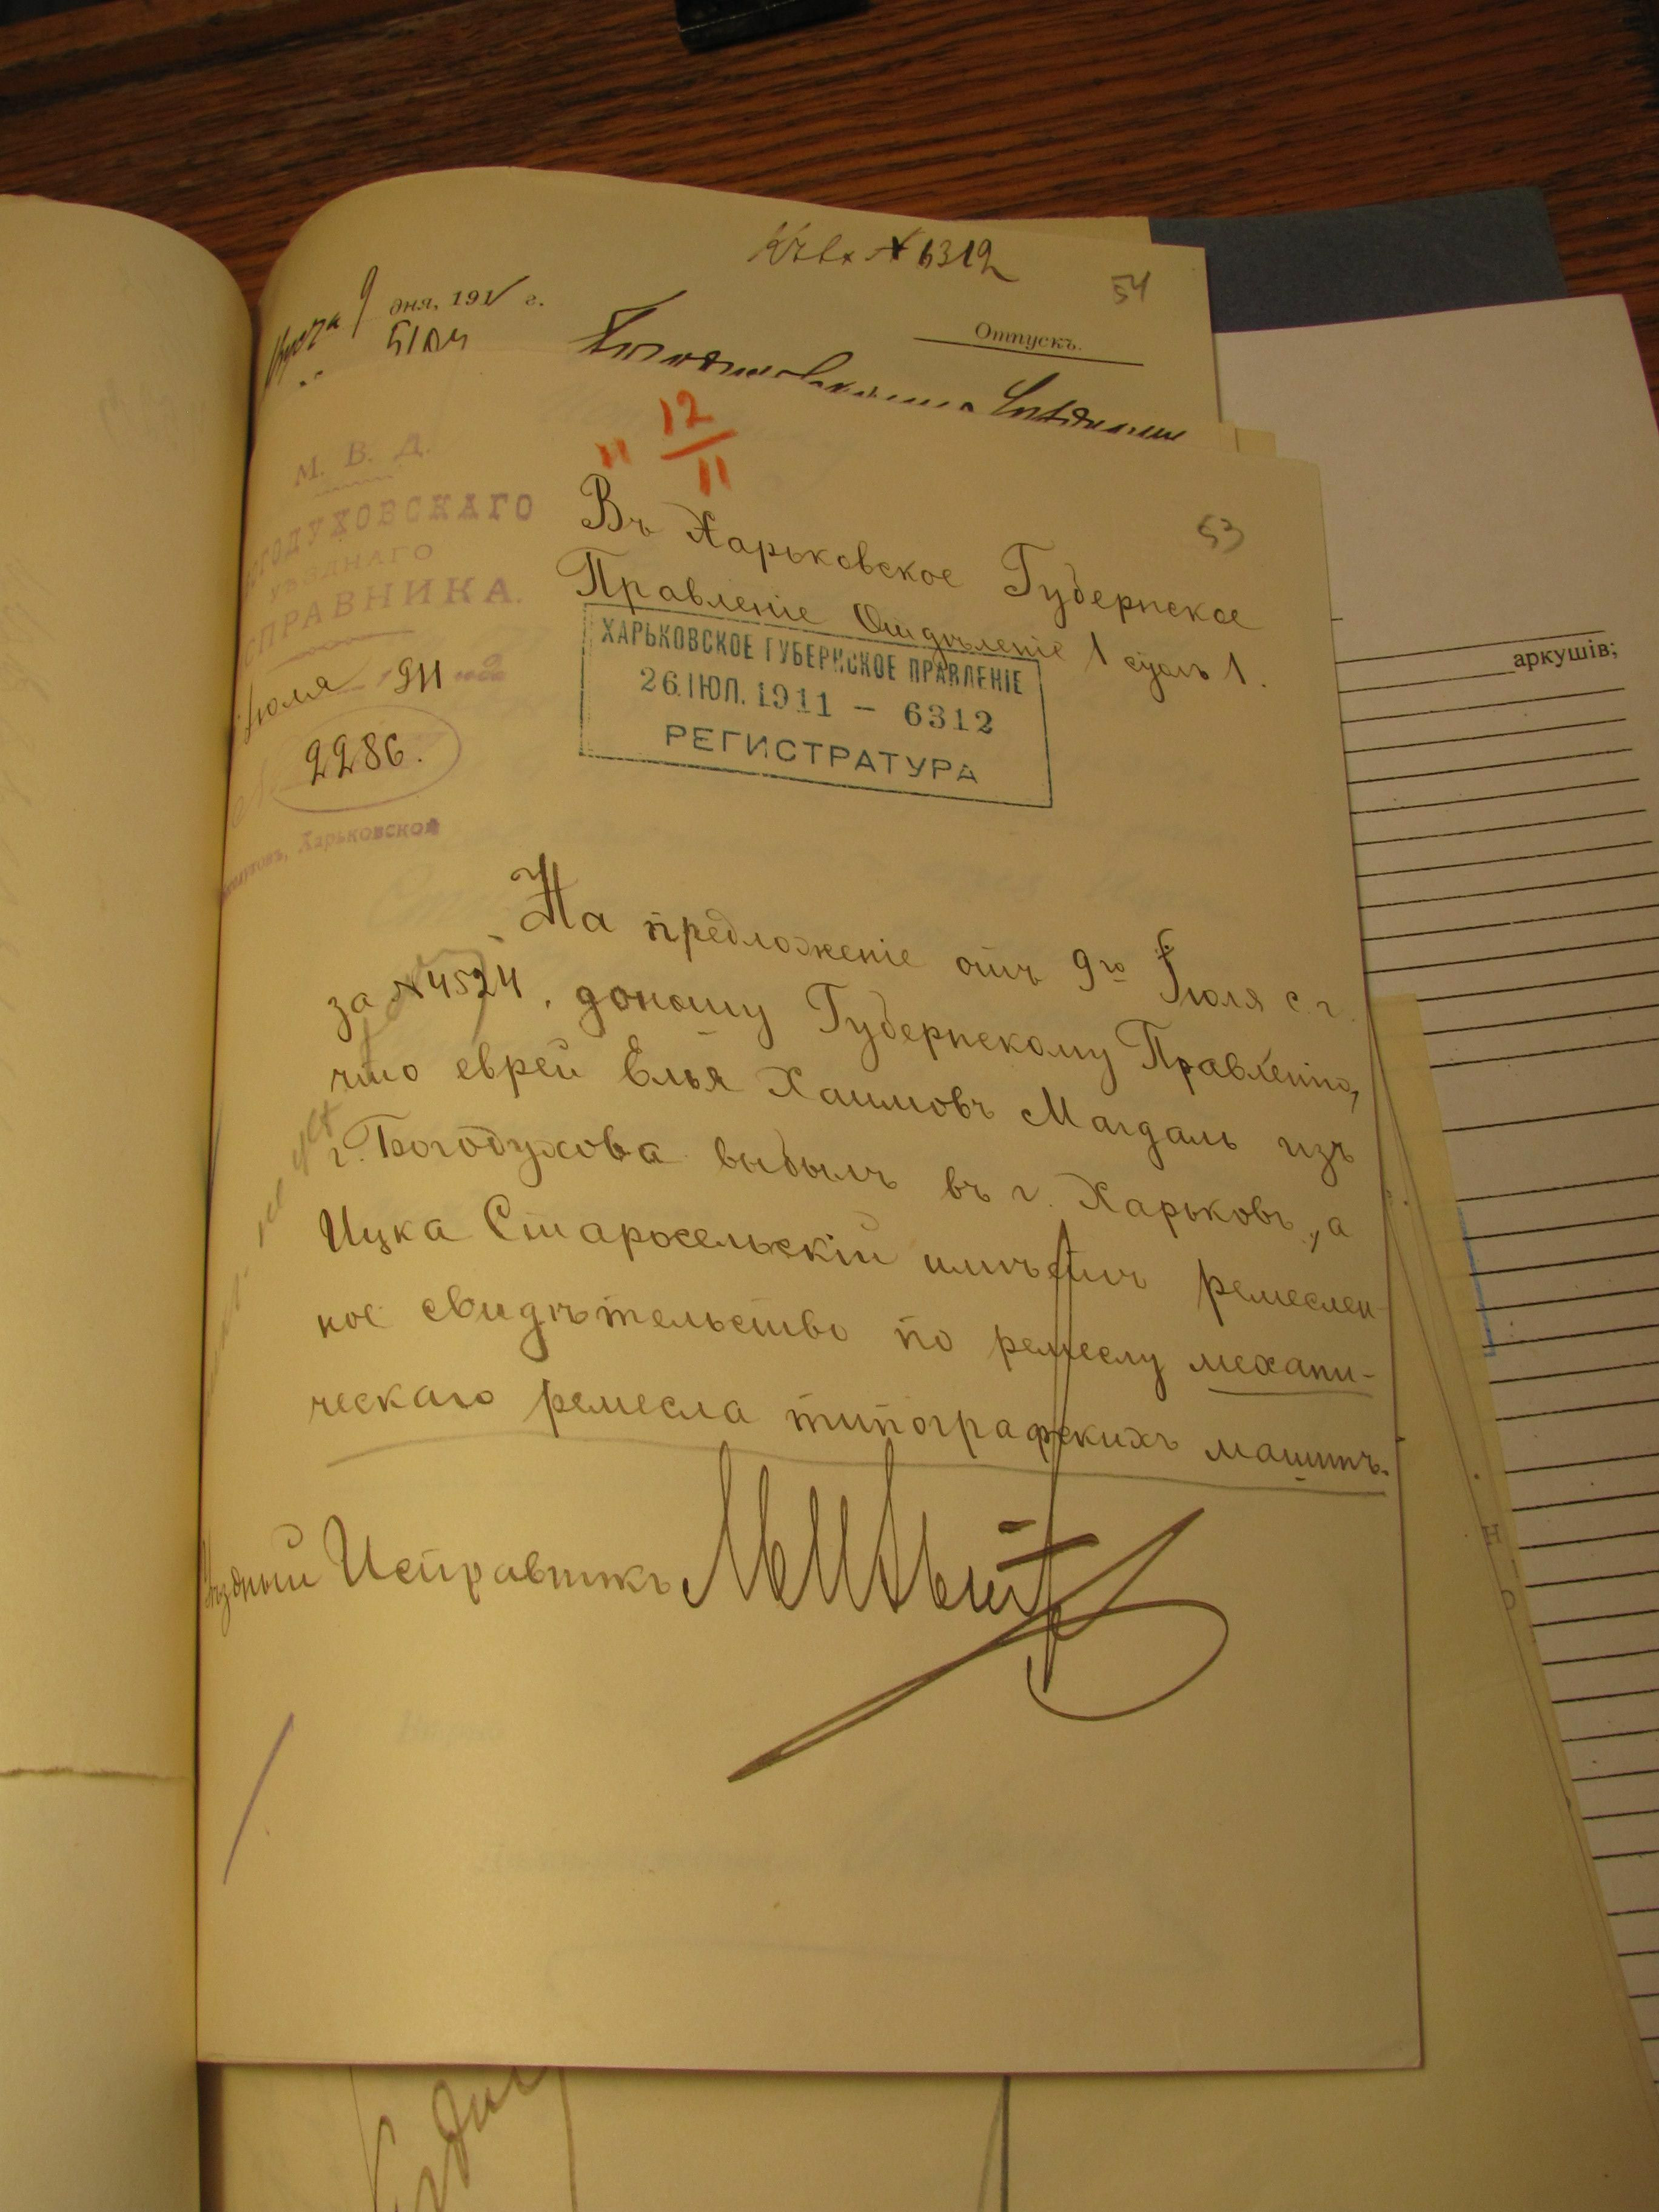 Къ вх № 6312
54
Августа 9 дня, 1911 г.
5104
Отпускъ.
Богодуховскому
" 12/11
М. В. Д.
БОГОДУХОВСКАГО
УѢЗДНАГО
ИСПРАВНИКА.
Іюля 1911 года
№ 2286.
Харьковской
53
Въ Харьковское Губернское
Правленіе Отдѣленіе 1 столъ 1.
ХАРЬКОВСКОЕ ГУБЕРНСКОЕ ПРАВЛЕНІЕ
26.ІЮЛ.1911 - 6312
РЕГИСТРАТУРА
На предложеніе отъ 9го Іюля с. г.
за № 4524, доношу Губернскому Правленію,
что еврей Елья Хаимовъ Магдаль изъ
г. Богодухова выбылъ въ г. Харьковъ, а
Ицка Старосельскій имѣетъ ремеслен-
ное свидѣтельство по ремеслу механи-
ческаго ремесла типографскихъ машинъ.
Уѣздный Исправникъ
аркушів;